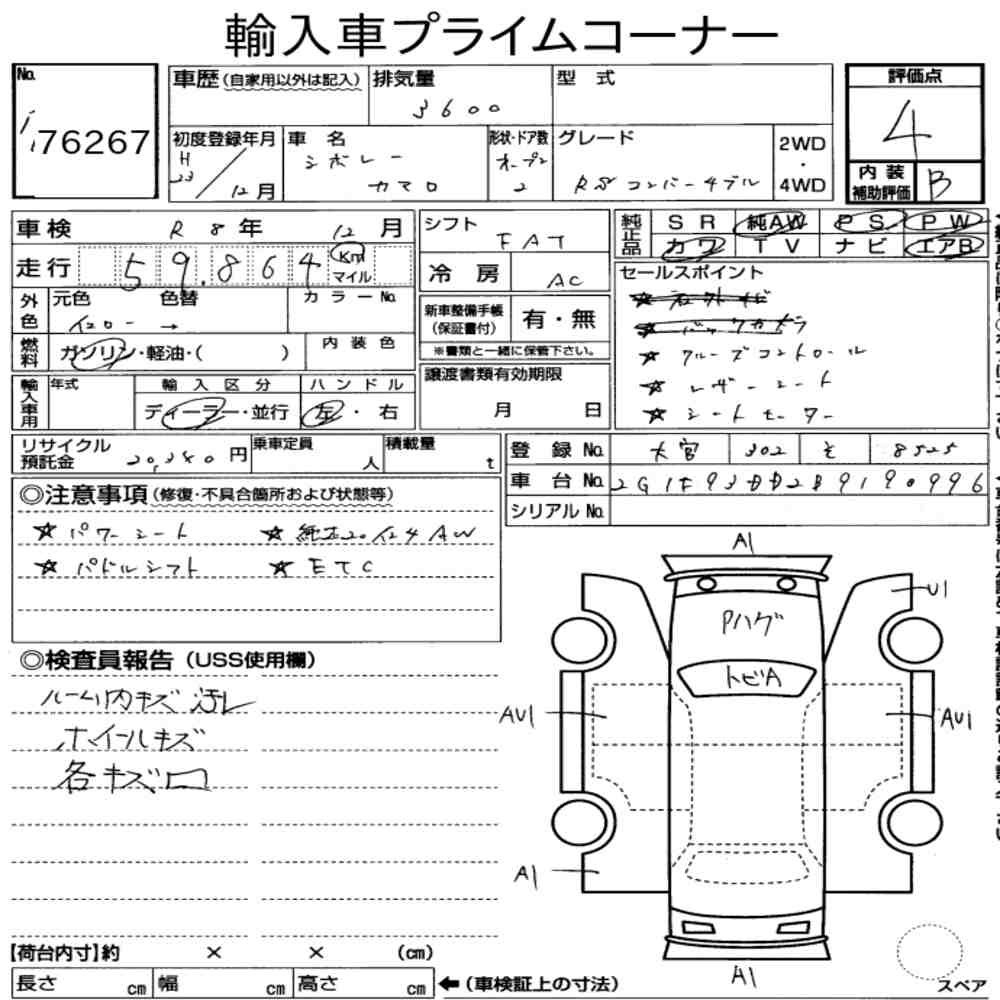 輸入車プライムコーナー
No.
76267
車歴(自家用以外は記入)
排気量
3600
型式
評価点
4
初度登録年月
H
23/12月
車名
シボレー
カマロ
形状・ドア数
オープン
2
グレード
RSコンバーチブル
2WD
・
4WD
内装
補助評価
B
車検 R8年 12月
シフト
FAT
純正品
SR 純AW PS PW
カワ TV ナビ エアB
走行 59.864 Km
マイル
冷房 AC
セールスポイント
外色
元色 色替 カラーNo.
イエロー →
新車整備手帳
(保証書付)
有・無
※書類と一緒に保管下さい。
☆バックカメラ
☆クルーズコントロール
☆レザーシート
☆シートヒーター
燃料
ガソリン・軽油・( )
内装色
輸入車用
年式
輸入区分
ハンドル
ディーラー・並行
左・右
譲渡書類有効期限
月 日
リサイクル
預託金 20,340円
乗車定員
人
積載量
t
登録No. 大宮 302 そ 8525
車台No. 2G1F93DD2B9190996
シリアルNo.
◎注意事項(修復・不具合箇所および状態等)
☆パワーシート ☆純正20インチAW
☆パドルシフト ☆ETC
◎検査員報告(USS使用欄)
ルーム内キズ汚レ
ホイールキズ
各キズ凹
A1
U1
Pハゲ
トビA
AU1
AU1
A1
A1
【荷台内寸】約 × × (cm)
長さ cm 幅 cm 高さ cm
←(車検証上の寸法)
スペア